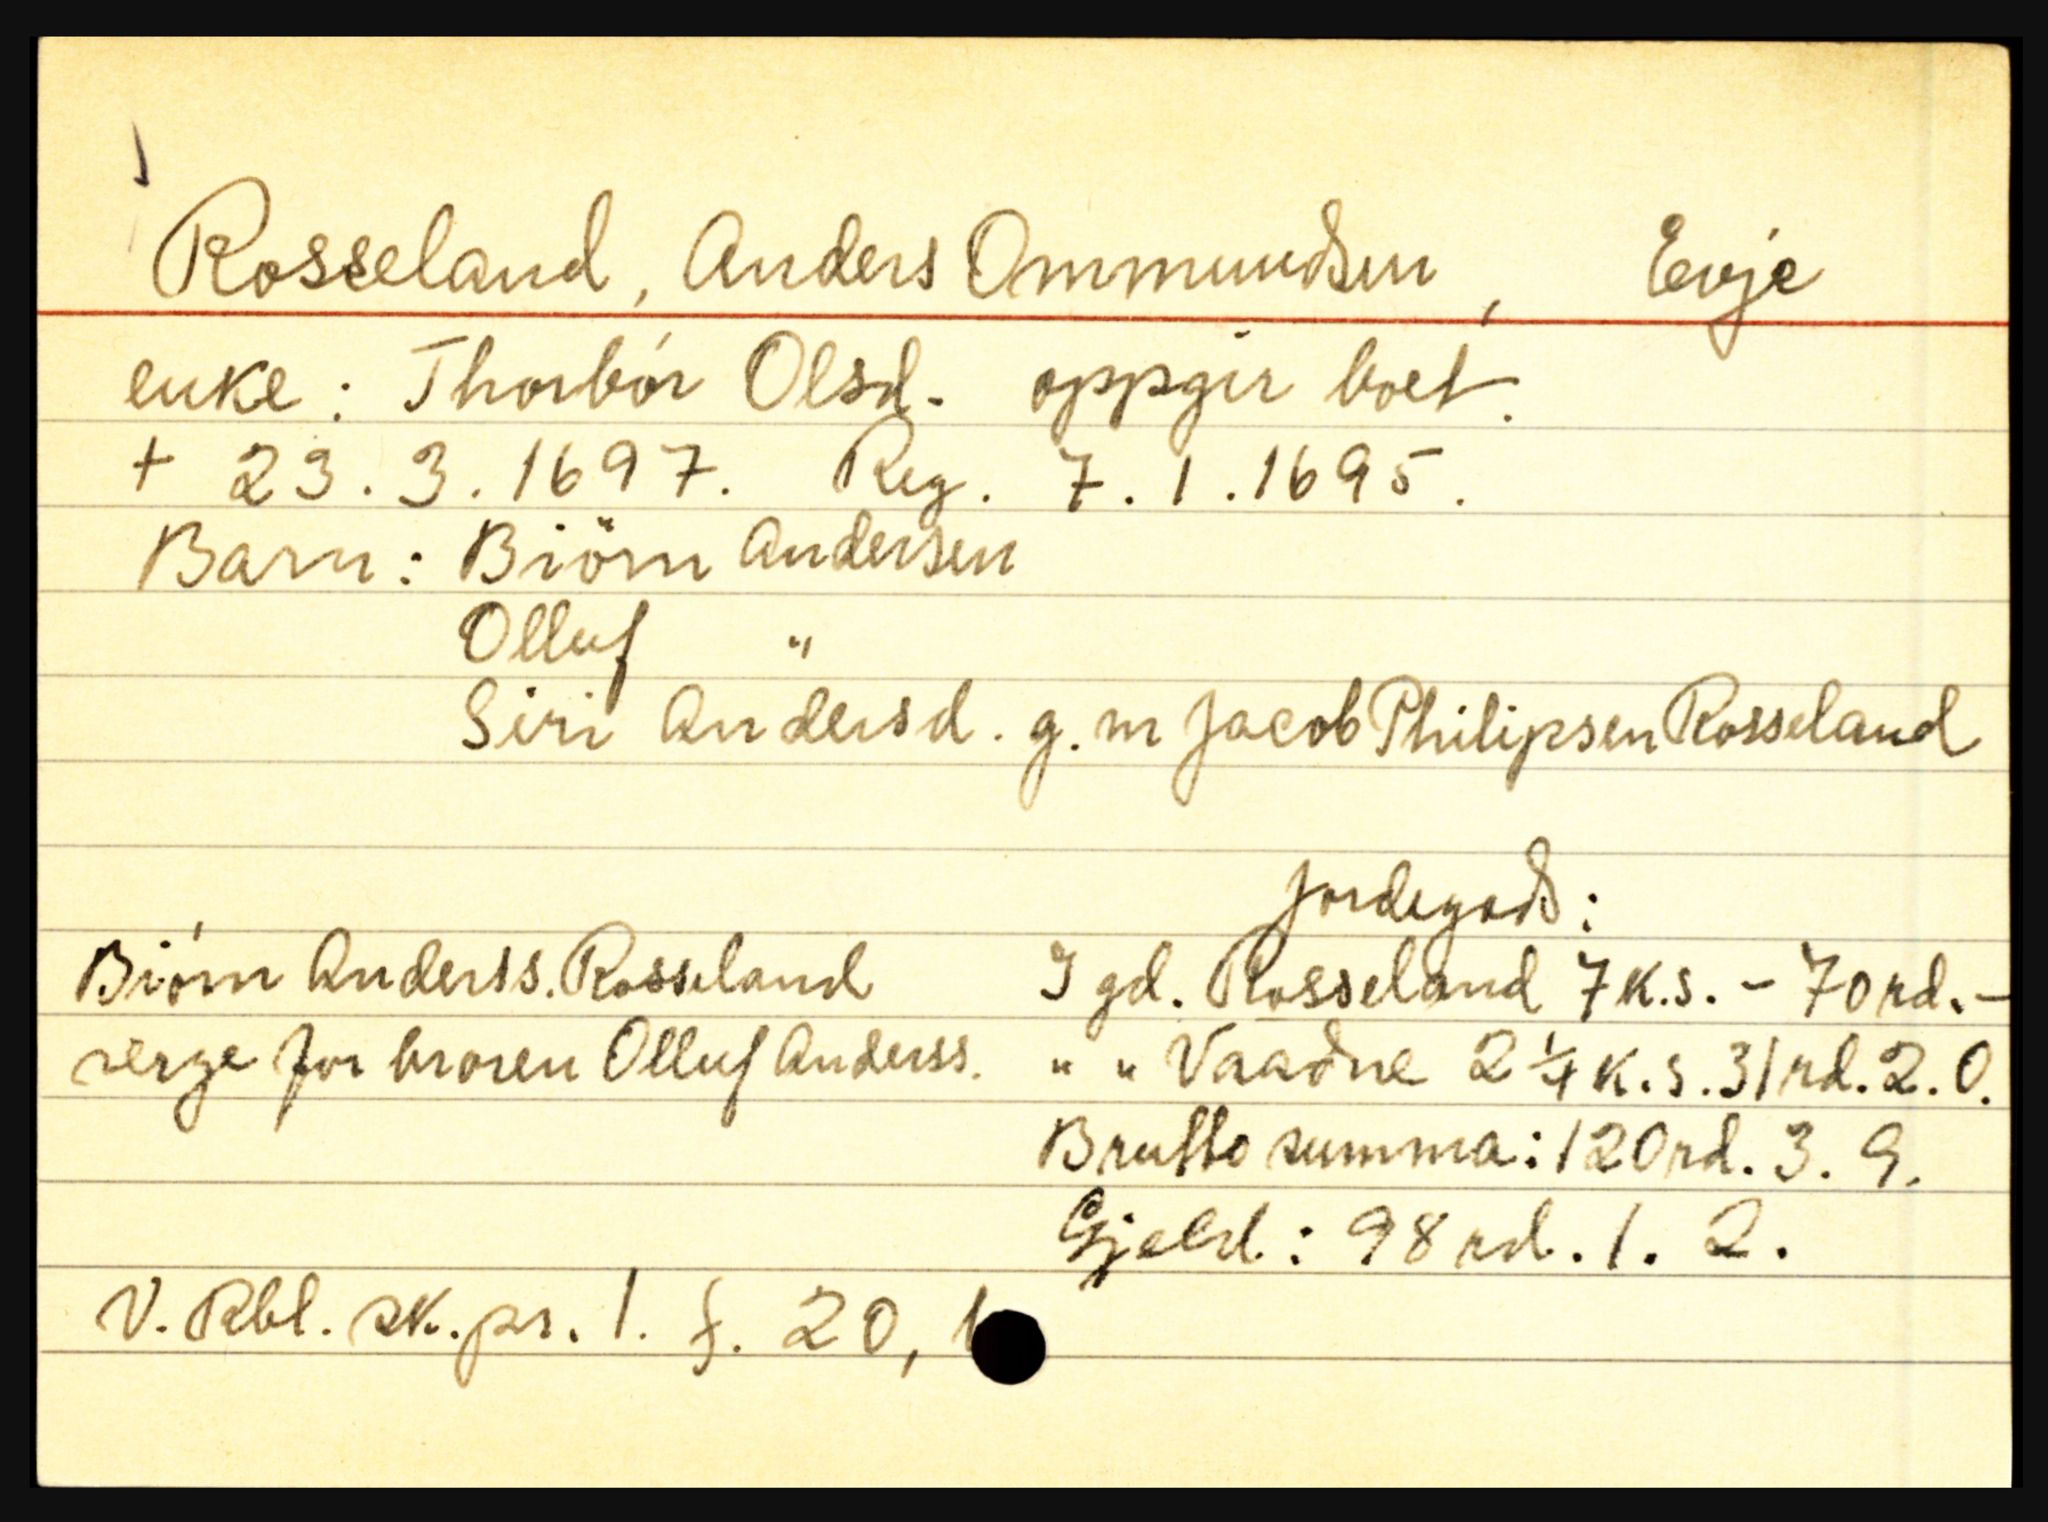 Rosseland, Anders Ommundsen, Evje
enke: Thorbór Olsd. oppgir boet.
+ 23.3.1697. Reg. 7.1.1695.
Barn: Biörn Andersen
Olluf "
Siri Andersd. g.m Jacob Philipsen Rosseland
Jordegods:
Biórn Anderss. Rosseland I gd. Rosseland 7 k.s. - 70 rd. -
verge for broren Olluf Anderss. " " Vaadne 2 1/4 k.s. 31 rd. 2. 0.
Brutto summa: 120 rd. 3. 9.
Gjeld: 98 rd. 1. 2.
V. Rbl. sk.pr. 1. f. 20,